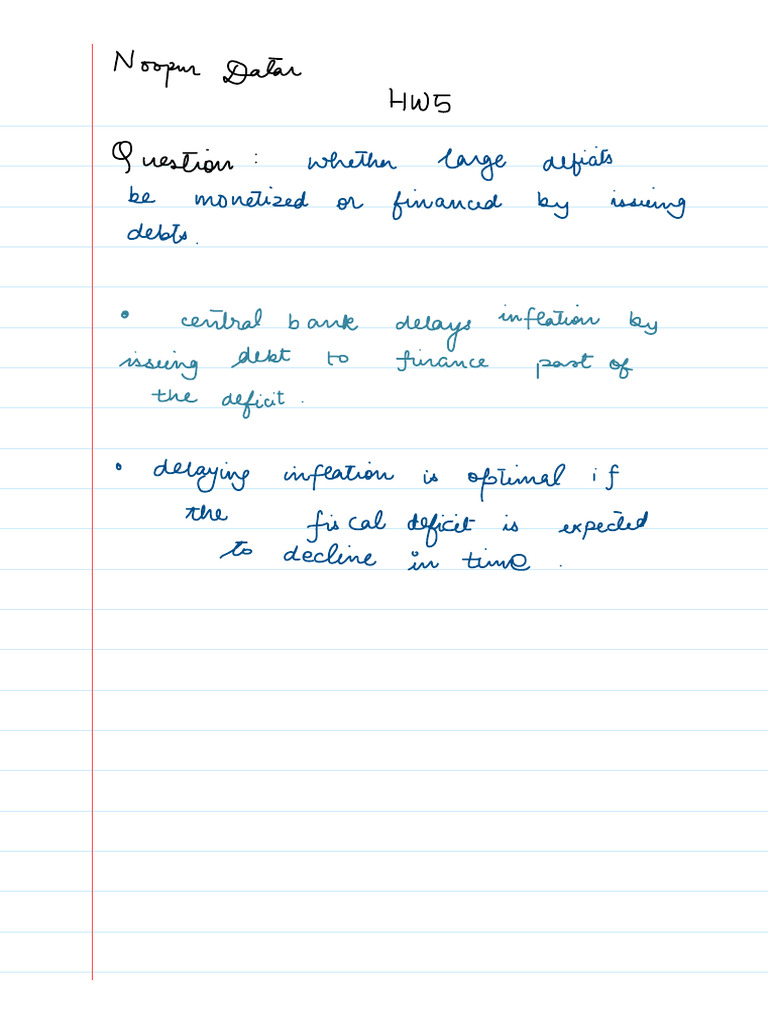 Noopur Datar
HW5
Question: whether large deficits
be monetized or financed by issuing
debts.
• central bank delays inflation by
issuing debt to finance part of
the deficit.
• delaying inflation is optimal if
the fiscal deficit is expected
to decline in time.